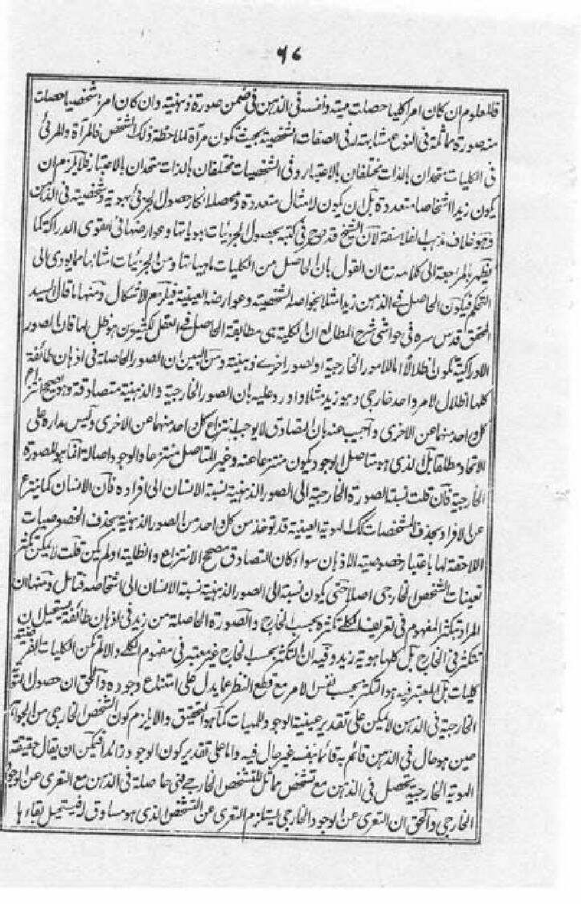 ٦٧
فالمعلوم ان كان امرا كليا حصلت ميته وانفسه فى الذهن فى ضمن صورة ذهنية وان كان امرا شخصيا حصلت
منه صورة مماثلة فى النوع مشابهة له فى الصفات الشخصية بحيث تكون مرآة لملاحظة ذلك الشخص فالمرآة والمرئى
فى الكليات متحدان بالذات مختلفان بالاعتبار وفى الشخصيات مختلفان بالذات متحدان بالاعتبار فلا يلزم ان
يكون زيد اشخاصا متعددة بل ان يكون لامثال متعددة ومحصله انكار حصول الجزئى بهويته وشخصيته فى الذهن
وهو خلاف مذهب الفلاسفة لان الشيخ قد صرح فى كتبه بحصول الجزئيات بهوياتها وعوارضها فى القوى الدراكة كما
يظهر بالمراجعة الى كلامه مع ان القول بان الحاصل من الكليات ماهياتها ومن الجزئيات امثالها مما يؤدى الى
التحكم فيكون الحاصل فى الذهن زيد مثلا بخواصه الشخصية وعوارضه العينية فيلزم الاشكال ومنها ما قال السيد
المحقق قدس سره فى حواشى شرح المطالع ان الكلية هى مطابقة الحاصل فى العقل لكثيرين هو ظل لها فان الصور
الادراكية تكون اظلالا اما للامور الخارجية او لصور اخرى ذهنية ومن البين ان الصور الحاصلة فى اذهان طائفة
كلها اظلال لامر واحد خارجى وهو زيد مثلا واورد عليه بان الصور الخارجية والذهنية متصادقة وهو يصحح انتزاع
كل واحد منها عن الاخرى واجيب عنه بان التصادق لا يوجب انتزاع كل احد منها عن الاخرى وليس مداره على
الاتحاد مطلقا بل الذى هو متاصل الوجود يكون منتزعا عنه وغير المتاصل منتزعا والوجود اصالة انما هو للصورة
الخارجية فان قلت نسبة الصورة الخارجية الى الصور الذهنية نسبة الانسان الى افراده فان الانسان كما ينتزع
عن الافراد بحذف المشخصات كذلك الهوية العينية قد توخذ من كل احد من الصور الذهنية بحذف الخصوصيات
اللاحقة لها باعتبار خصوصية الاذهان سواء كان التصادق مصحح الانتزاع والظلية اولم يكن قلت لا يمكن تكثر
تعينات الشخص الخارجى اصلا حتى يكون نسبته الى الصور الذهنية نسبة الانسان الى اشخاصه فتامل ومنها ان
المراد بتكثر المفهوم فى تعريف الكلى تكثره بحسب الخارج والصورة الحاصلة من زيد فى اذهان طائفة يستحيل ان
تتكثر فى الخارج بل كلها هوية زيد وفيه ان التكثر بحسب الخارج غير معتبر فى مفهوم الكلى والا لم تكن الكليات الفرضية
كليات بل المعتبر فيه هو التكثر بحسب نفس الامر مع قطع النظر عما يدل على امتناع وجوده والحق ان حصول الهوية
الخارجية فى الذهن لا يمكن على تقدير عينية الوجود للهيات كما هو التحقيق والا يلزم كون الشخص الخارجى من الجواهر
حين هو حال فى الذهن قائم به قائما بنفسه غير حال فيه واما على تقدير كون الوجود زائدا فيمكن ان يقال حقيقة
الهوية الخارجية يحصل فى الذهن مع تشخص مماثل للشخص الخارجى فهى حاصلة فى الذهن مع التعرى عن الوجود
الخارجى والحق ان التعرى عن الوجود الخارجى يستلزم التعرى عن التشخص الذى هو مساوق له فيستحيل بقاءها